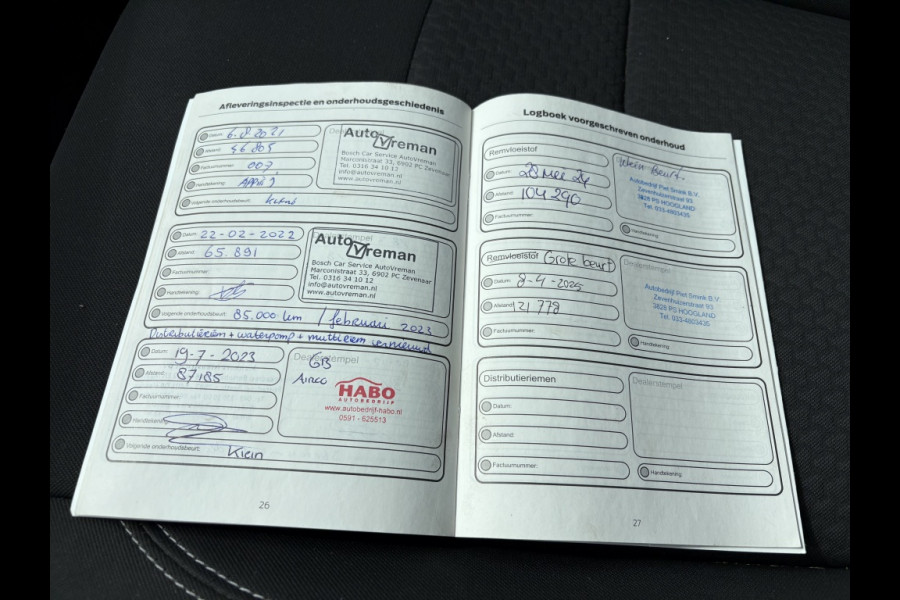 Afleveringsinspectie en onderhoudsgeschiedenis
Datum: 6.8.2021
Afstand: 56.805
Factuurnummer: 007
Handtekening:
Volgende onderhoudsbeurt: Klein
AutoVreman
Bosch Car Service AutoVreman
Marconistraat 33, 6902 PC Zevenaar
Tel. 0316 34 10 12
info@autovreman.nl
www.autovreman.nl
Datum: 22-02-2022
Afstand: 65.891
Factuurnummer:
Handtekening:
Volgende onderhoudsbeurt: 85.000 km / februari 2023
AutoVreman
Bosch Car Service AutoVreman
Marconistraat 33, 6902 PC Zevenaar
Tel. 0316 34 10 12
info@autovreman.nl
www.autovreman.nl
Distributieriem + waterpomp + multiriem vernieuwd
Datum: 19-7-2023
Afstand: 87185
Factuurnummer:
Handtekening:
Volgende onderhoudsbeurt: Klein
Dealerstempel
GB
Airco
HABO
AUTOBEDRIJF
www.autobedrijf-habo.nl
0591 - 625513
26
Logboek voorgeschreven onderhoud
Remvloeistof
Datum: 28 Mei 24
Afstand: 104290
Factuurnummer:
Klein Beurt.
Autobedrijf Piet Smink B.V.
Zevenhuizerstraat 93
3828 PS HOOGLAND
Tel. 033-4803435
Handtekening
Remvloeistof Grote beurt
Datum: 8-4-2025
Afstand: 121778
Factuurnummer:
Dealerstempel
Autobedrijf Piet Smink B.V.
Zevenhuizerstraat 93
3828 PS HOOGLAND
Tel. 033-4803435
Handtekening
Distributieriemen
Datum:
Afstand:
Factuurnummer:
Dealerstempel
Handtekening
27